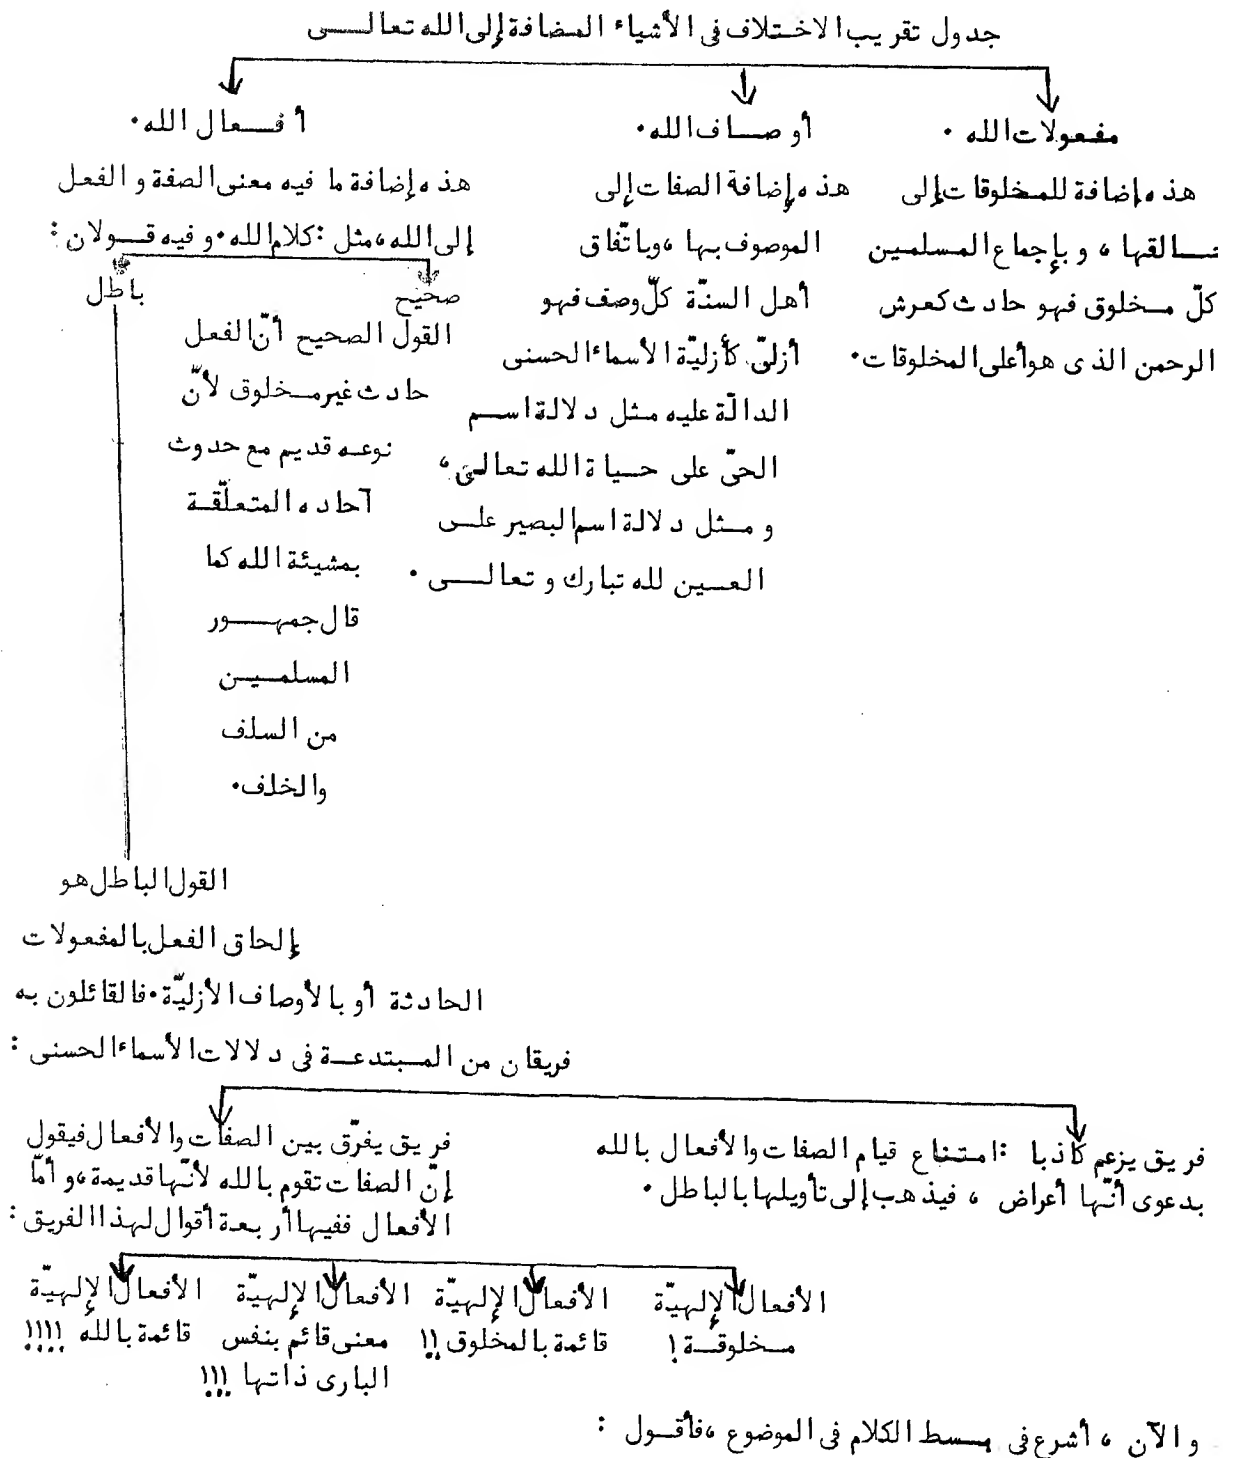 جدول تقريب الاختلاف في الأشياء المضافة إلى الله تعالى
مفعولات الله .
هذه إضافة للمخلوقات إلى
خالقها ، و بإجماع المسلمين
كلّ مخلوق فهو حادث كعرش
الرحمن الذى هو أعلى المخلوقات .
أوصاف الله .
هذه إضافة الصفات إلى
الموصوف بها ، وباتّفاق
أهل السنّة كلّ وصف فهو
أزليّ كأزليّة الأسماء الحسنى
الدالّة عليه مثل دلالة اسم
الحىّ على حياة الله تعالى ،
و مثل دلالة اسم البصير على
العين لله تبارك و تعالى .
أفعال الله .
هذه إضافة ما فيه معنى الصفة و الفعل
إلى الله ، مثل : كلام الله . و فيه قولان :
صحيح
القول الصحيح أنّ الفعل
حادث غير مخلوق لأنّ
نوعه قديم مع حدوث
آحاده المتعلّقة
بمشيئة الله كما
قال جمهور
المسلمين
من السلف
والخلف .
باطل
القول الباطل هو
إلحاق الفعل بالمفعولات
الحادثة أو بالأوصاف الأزليّة . فالقائلون به
فريقان من المبتدعة في دلالات الأسماء الحسنى :
فريق يزعم كاذبا : امتناع قيام الصفات والأفعال بالله
بدعوى أنّها أعراض ، فيذهب إلى تأويلها بالباطل .
فريق يفرّق بين الصفات والأفعال فيقول
إنّ الصفات تقوم بالله لأنّها قديمة ، و أمّا
الأفعال ففيها أربعة أقوال لهذا الفريق :
الأفعال الإلهيّة
مخلوقة !
الأفعال الإلهيّة
قائمة بالمخلوق !!
الأفعال الإلهيّة
معنى قائم بنفس
البارى ذاتها !!!
الأفعال الإلهيّة
قائمة بالله !!!!
و الآن ، أشرع في بسط الكلام في الموضوع ، فأقول :